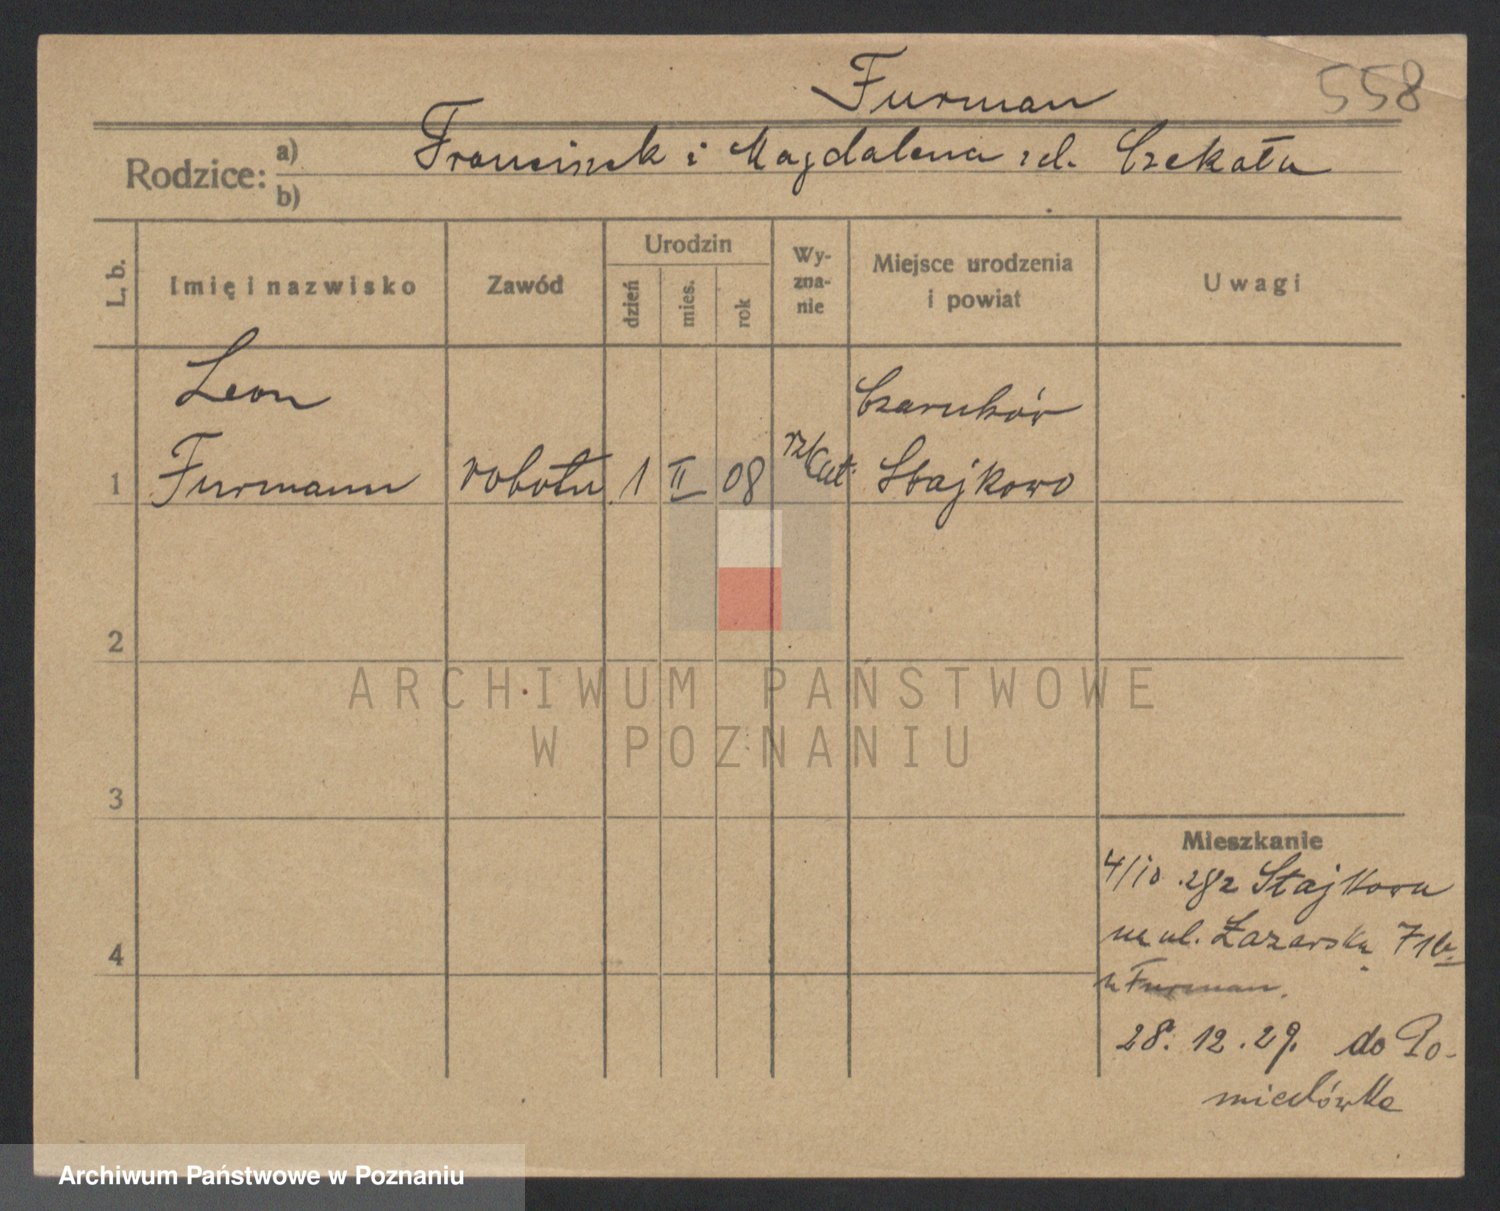 Furman
558
Rodzice: a) Franciszek i Magdalena zd. Czekała
b)
L. b.
Imię i nazwisko
Zawód
Urodzin
dzień
mies.
rok
Wy-
zna-
nie
Miejsce urodzenia
i powiat
Uwagi
Leon
Czarnków
1 Furmann robotn. 1 II 08 rz/kat. Stajkowo
2
ARCHIWUM PAŃSTWOWE
W POZNANIU
3
Mieszkanie
4/10 28 z Stajkowa
na ul. Łazarską 71b.
4
u Furman.
28. 12. 29. do Po-
miedówka
Archiwum Państwowe w Poznaniu